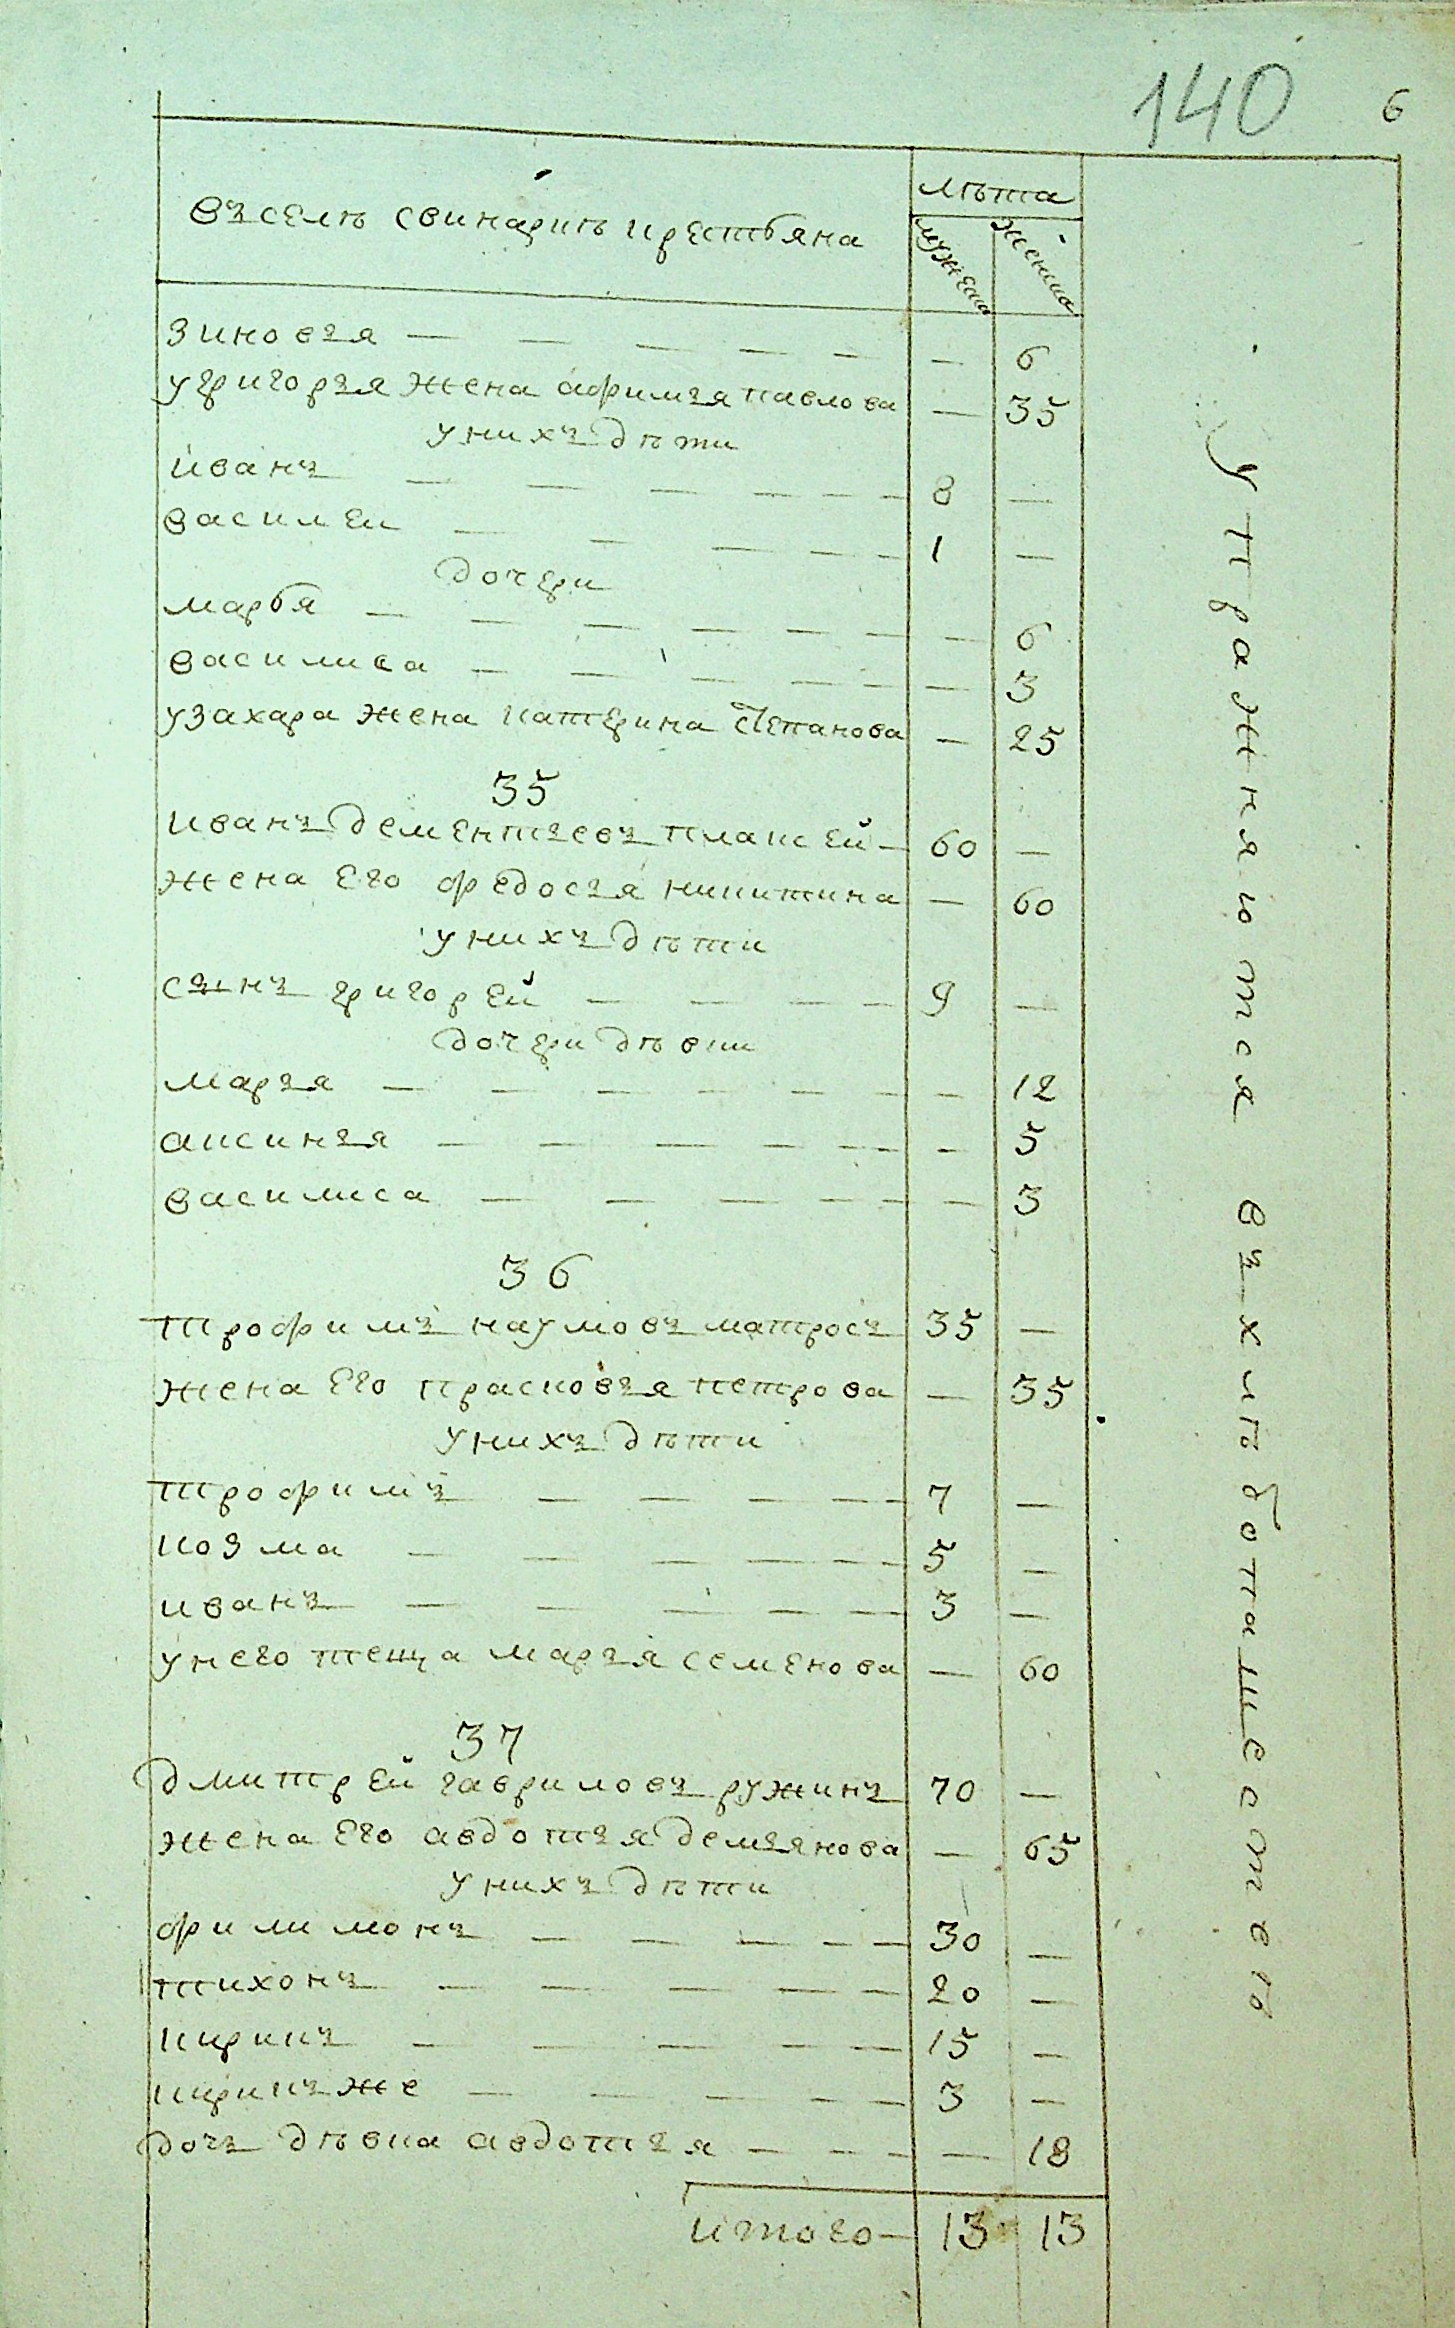 140 6
въ селѣ свинаринѣ крестьяна
лѣта
мужеска
женска
зиновъя — — — — — — 6
у григоръя жена афимъя павлова — 35
у нихъ дѣти
иванъ — — — — — — 8 —
василей — — — — — 1 —
дочери
марья — — — — — — — 6
василиса — — — — — — 3
у захара жена катерина степанова — 25
35
иванъ дементъевъ плаксей — 60 —
жена его федосъя никитина — 60
у нихъ дѣти
сынъ григорей — — — — 9 —
дочери дѣвки
маръя — — — — — — — — 12
аксинъя — — — — — — — 5
василиса — — — — — — 3
36
трофимъ наумовъ матросъ 35 —
жена его прасковъя петрова — 35
у нихъ дѣти
трофимъ — — — — — 7 —
козма — — — — — — 5 —
иванъ — — — — — 3 —
у него теща маръя семенова — 60
37
дмитрей гавриловъ ружинъ 70 —
жена его авдотъя демъянова — 65
у нихъ дѣти
филимонъ — — — — — 30 —
тихонъ — — — — — 20 —
кирикъ — — — — — 15 —
кирикъ же — — — — — 3 —
дочъ дѣвка авдотъя — — — — — 18
итого — 13 13
упражняются въ хлѣбопашествѣ